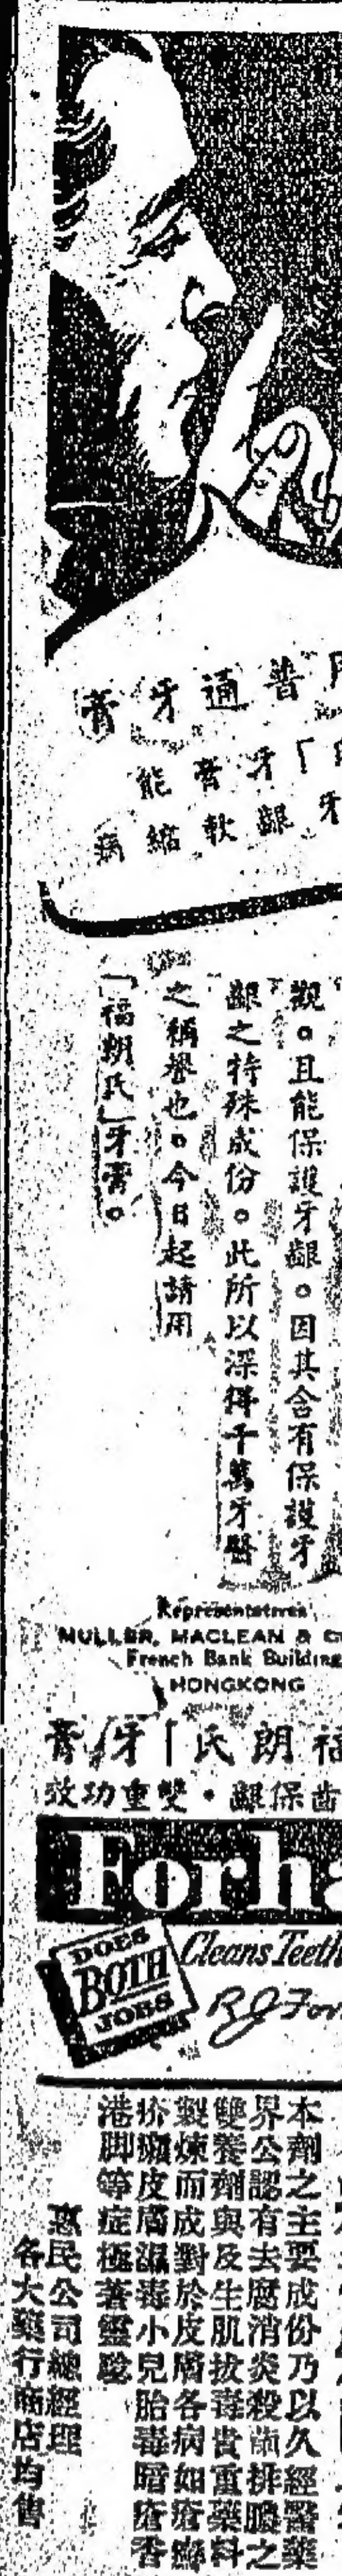 普通牙膏
牙膏能
牙齦軟縮病
觀。且能保護牙齦。因其含有保護牙
齦之特殊成份。此所以深得千萬牙醫
之稱譽也。今日起請用
「福朗氏」牙膏。
Representatives
MULLER, MACLEAN &
French Bank Building
HONGKONG
福朗氏「牙膏
齒保齦・雙重功效
Forha
DOES
BOTH
JOBS
Cleans Teeth
R J For
本劑之主要成份乃以久經醫藥
界公認有去腐消炎殺菌排膿之
雙養劑與及生肌拔毒貴重藥料
製煉而成對於皮膚各病如瘡癬
疥癩皮膚濕毒小兒胎毒暗瘡香
港脚等症極著靈驗
惠民公司總經理
各大藥行商店均售